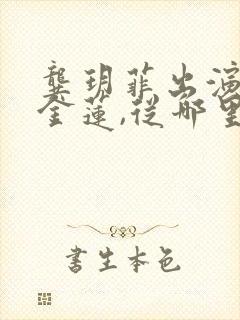 龔玥菲出演
金蓮,從哪里
書生本色